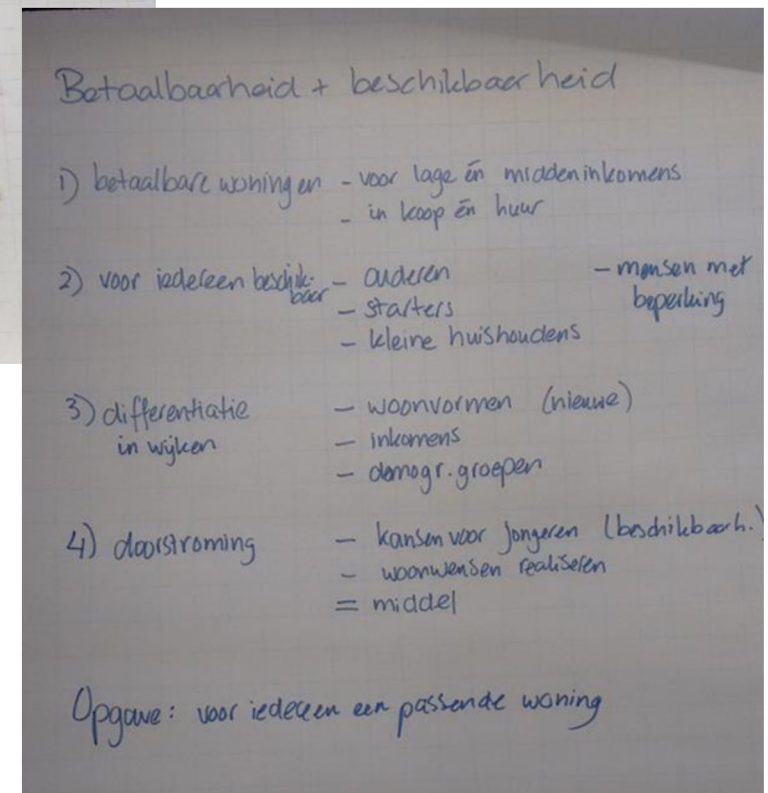 Betaalbaarheid + beschikbaarheid
1) betaalbare woningen - voor lage én middeninkomens
- in koop én huur
2) voor iedereen beschik-
baar - ouderen
- starters
- kleine huishoudens
- mensen met
beperking
3) differentiatie
in wijken
- woonvormen (nieuwe)
- inkomens
- demogr. groepen
4) doorstroming
- kansen voor jongeren (beschikbaarh.)
- woonwensen realiseren
= middel
Opgave: voor iedereen een passende woning